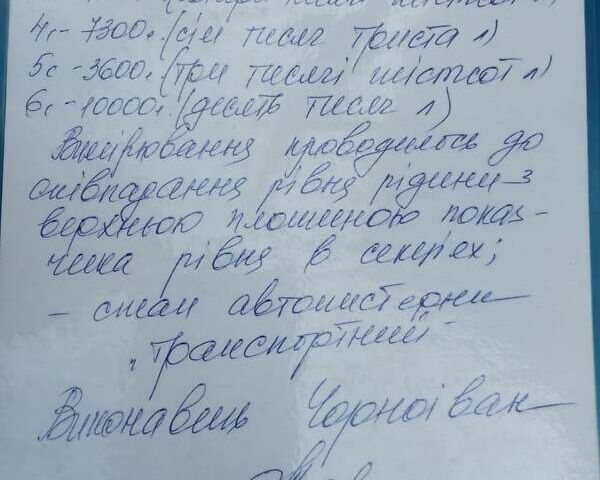 4с - 7300л. (сім тисяч триста л)
5с - 3600л. (три тисячі шістсот л)
6с - 10000л. (десять тисяч л)
Вимірювання проводилось до
співпадання рівня рідини з
верхньою площиною показ-
чика рівня в секціях;
- стан автоцистерни
„Транспортний"
Виконавець Чорноіван